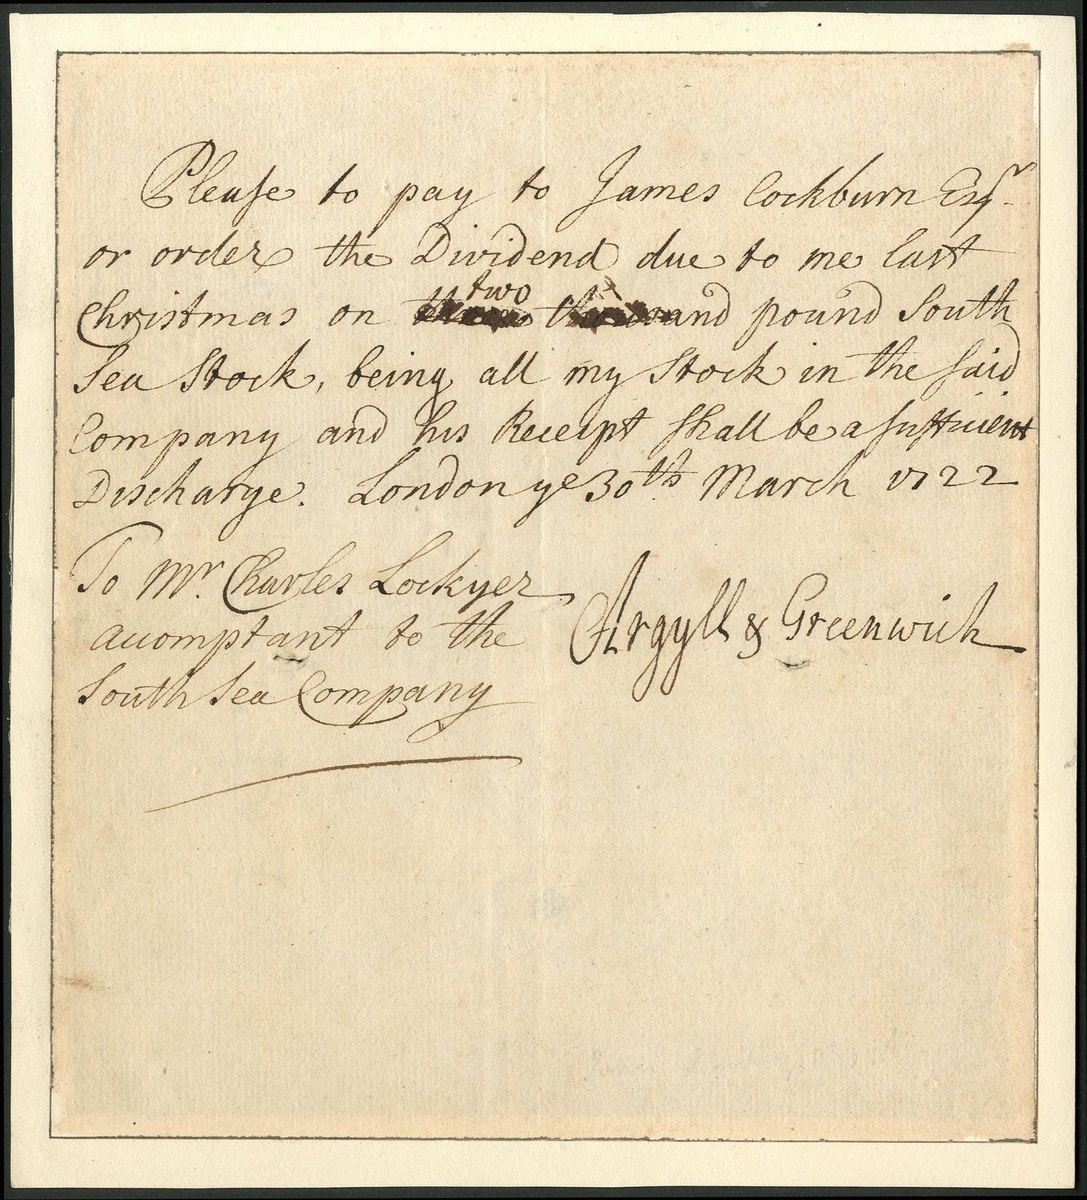 Please to pay to James Cockburn Esqr
or order the Dividend due to me last
Christmas on two thousand pound South
Sea Stock, being all my Stock in the said
Company and his Receipt shall be a sufficient
Discharge. London ye 30th March 1722
To Mr. Charles Lockyer
accomptant to the
South Sea Company
Argyll & Greenwich